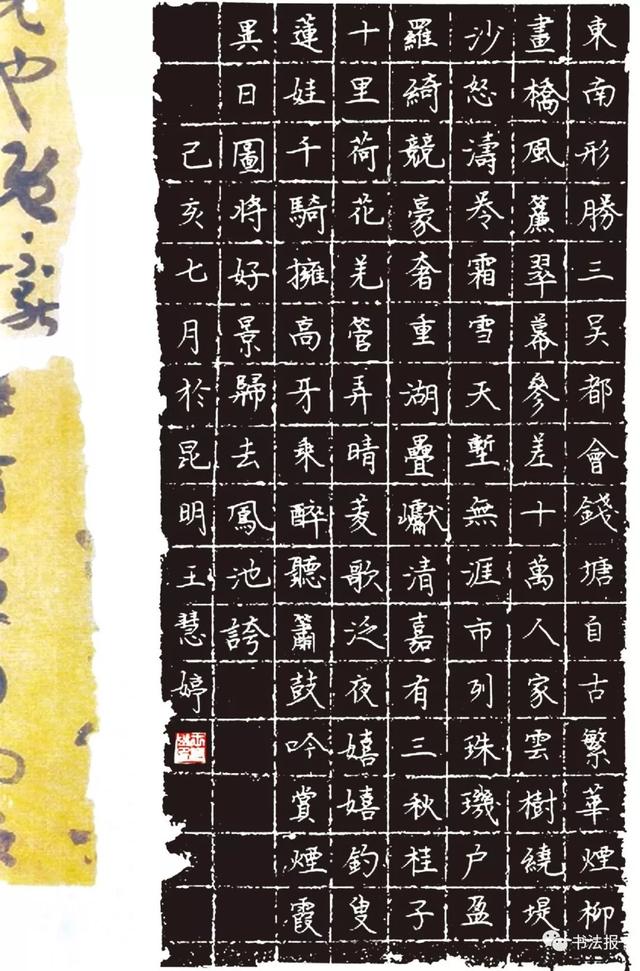 東南形勝三吴都會錢塘自古繁華煙柳
畫橋風簾翠幕參差十萬人家雲樹繞堤
沙怒濤卷霜雪天塹無涯市列珠璣户盈
羅綺競豪奢重湖疊巘清嘉有三秋桂子
十里荷花羌管弄晴菱歌泛夜嬉嬉釣叟
蓮娃千騎擁高牙乘醉聽簫鼓吟賞煙霞
異日圖將好景歸去鳳池誇
己亥七月於昆明王慧婷
书法报